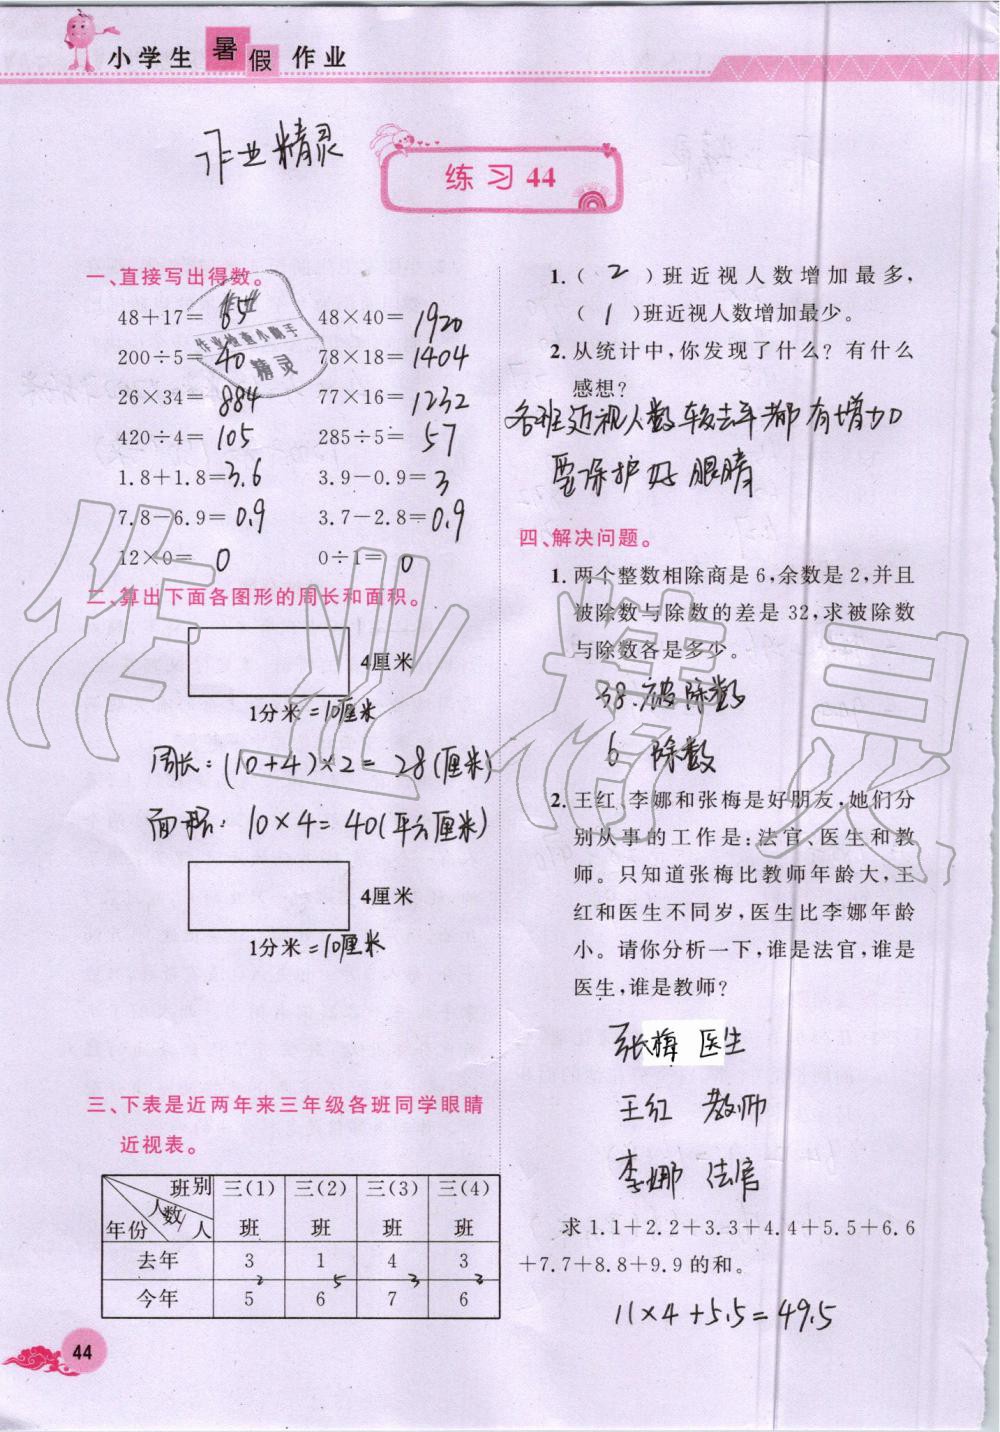 小学生暑假作业
作业精灵
练习44
一、直接写出得数。
48+17= 65 48×40= 1920
200÷5= 40 78×18= 1404
26×34= 884 77×16= 1232
420÷4= 105 285÷5= 57
1.8+1.8= 3.6 3.9-0.9= 3
7.8-6.9= 0.9 3.7-2.8= 0.9
12×0= 0 0÷1= 0
作业
作业检查小助手
精灵
二、算出下面各图形的周长和面积。
4厘米
1分米 =10厘米
周长:(10+4)×2= 28(厘米)
面积: 10×4=40(平方厘米)
4厘米
1分米 =10厘米
三、下表是近两年来三年级各班同学眼睛
近视表。
班别 三(1) 三(2) 三(3) 三(4)
人数/人
年份 班 班 班 班
去年 3 1 4 3
2 5 3 3
今年 5 6 7 6
44
1.( 2 )班近视人数增加最多,
( 1 )班近视人数增加最少。
2.从统计中,你发现了什么?有什么
感想?
各班近视人数较去年都有增加
要保护好眼睛
四、解决问题。
1.两个整数相除商是6,余数是2,并且
被除数与除数的差是32,求被除数
与除数各是多少。
38.被除数
6 除数
2.王红、李娜和张梅是好朋友,她们分
别从事的工作是:法官、医生和教
师。只知道张梅比教师年龄大,王
红和医生不同岁,医生比李娜年龄
小。请你分析一下,谁是法官,谁是
医生,谁是教师?
张梅 医生
王红 教师
李娜 法官
求1.1+2.2+3.3+4.4+5.5+6.6
+7.7+8.8+9.9的和。
11×4+5.5=49.5
作业精灵